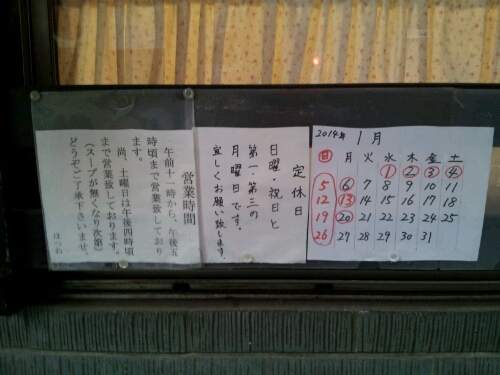 営業時間
午前十一時から、午後五
時頃まで営業致しており
ます。
尚、土曜日は午後四時頃
まで営業致しております。
(スープが無くなり次第)
どうぞご了承下さいませ。
はつね
定休日
日曜・祝日と
第一・第三の
月曜日です。
宜しくお願い致します。
2014年 1月
日 月 火 水 木 金 土
1 2 3 4
5 6 7 8 9 10 11
12 13 14 15 16 17 18
19 20 21 22 23 24 25
26 27 28 29 30 31